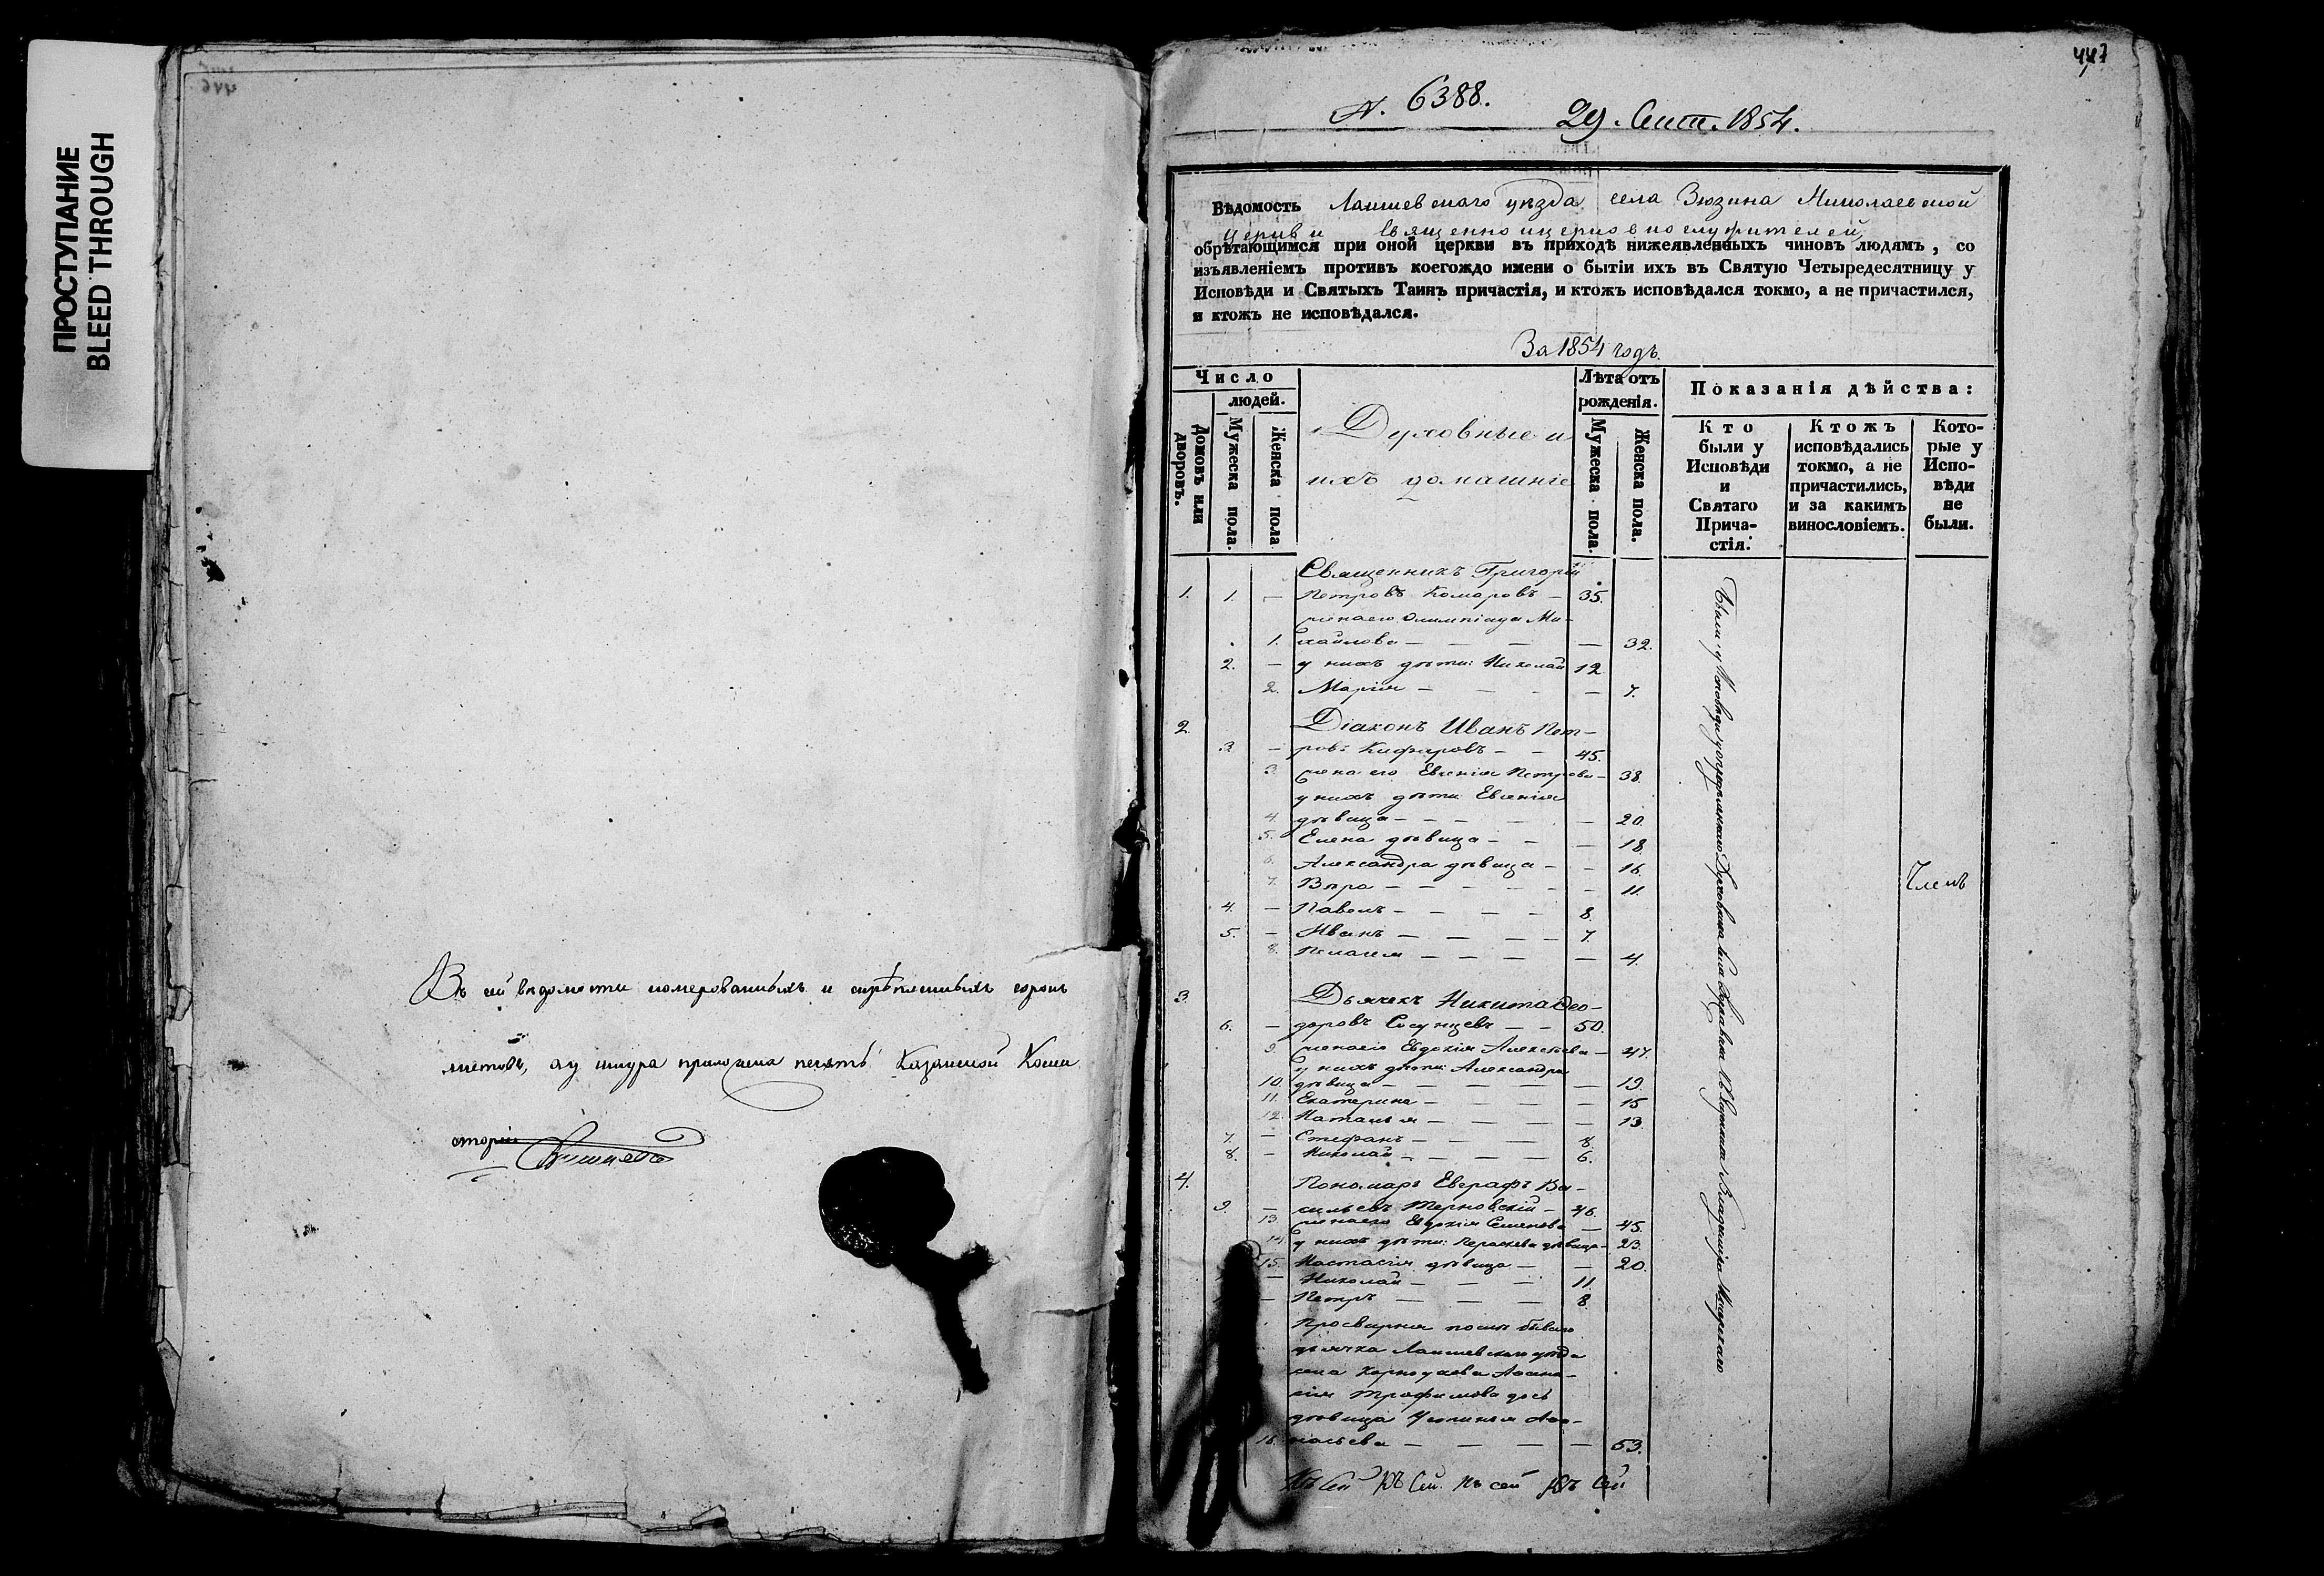 ПРОСТУПАНИЕ
BLEED THROUGH
Въ сей вѣдомости номерованныхъ и скрѣпленныхъ сорокъ
листовъ, а у шнура приложена печать Казанской Конси
сторіи
447
N. 6388.
29. Сент. 1854.
Вѣдомость Лаишевскаго уѣзда села Зюзина Николаевской
церкви священно и церковно служителей
обрѣтающимся при оной церкви въ приходѣ нижеявленныхъ чиновъ людямъ, со
изъявленіемъ противъ коегождо имени о бытіи ихъ въ Святую Четыредесятницу у
Исповѣди и Святыхъ Таинъ причастія, и ктожъ исповѣдался токмо, а не причастился,
и ктожъ не исповѣдался.
За 1854 годъ.
Число
людей.
Домовъ или дворовъ.
Мужеска пола.
Женска пола
Духовные и
ихъ домашніе
Лѣта отъ
рожденія.
Мужеска пола.
Женска пола.
Показанія дѣйства:
Кто
были у
Исповѣди
и
Святаго
Прича-
стія.
Ктожъ
исповѣдались
токмо, а не
причастились,
и за какимъ
винословіемъ.
Кото-
рые у
Испо-
вѣди
не
были.
Священникъ Григорій
1. 1. — Петровъ Комаровъ — 35.
жена его Олимпіада Ми-
1. хайлова — — — — 32.
2. — у нихъ дѣти: Николай 12
2. Марія — — — — 7.
2. Діаконъ Иванъ Пет-
3 — ровъ Кафаровъ — — 45.
3. жена его Евгенія Петрова — 38.
у нихъ дѣти Евгенія
4. дѣвица — — — — — 20.
5. Елена дѣвица — — — 18
6. Александра дѣвица — — 16.
7. Вѣра — — — — — — 11.
4. — Павелъ — — — — 8.
5. — Иванъ — — — — 7.
8. Пелагея — — — — — 4.
3. Дьячекъ Никита Ѳео-
6. — доровъ Сосунцевъ — — 50.
9. жена его Евдокія Алексѣева — 47.
у нихъ дѣти: Александра
10. дѣвица — — — — — 19.
11. Екатерина — — — — — 15
12. Наталья — — — — — 13.
7. — Стефанъ — — — 8.
8. — Николай — — — — 6.
4. Пономарь Евграфъ Ва-
9. — сильевъ Терновскій — 46.
13. жена его Евдокія Семенова — 45.
14. у нихъ дѣти: Параскева дѣвица — 23.
15. Настасія дѣвица — — 20.
— Николай — — — 11.
— Петръ — — — 8.
Просвирня послѣ бывшаго
дьячка Лаишевскаго уѣзда
села Корноухова Аѳана-
сія Трофимова дочь
дѣвица Устинья Аѳа-
16. насьева — — — — — 53.
Къ сей Къ сей Къ сей Къ сей
Членъ